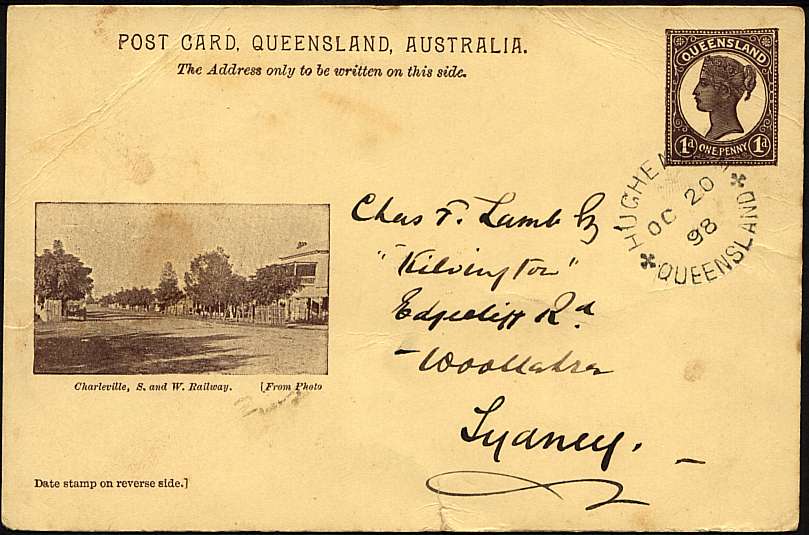 POST CARD, QUEENSLAND, AUSTRALIA.
The Address only to be written on this side.
QUEENSLAND
1d ONE PENNY 1d
HUGHEN
OC 20
98
QUEENSLAND
Chas F. Lamb Esq
"Kilvington"
Edgecliff Rd
Woollahra
Sydney.
Charleville, S. and W. Railway. [From Photo
Date stamp on reverse side.]